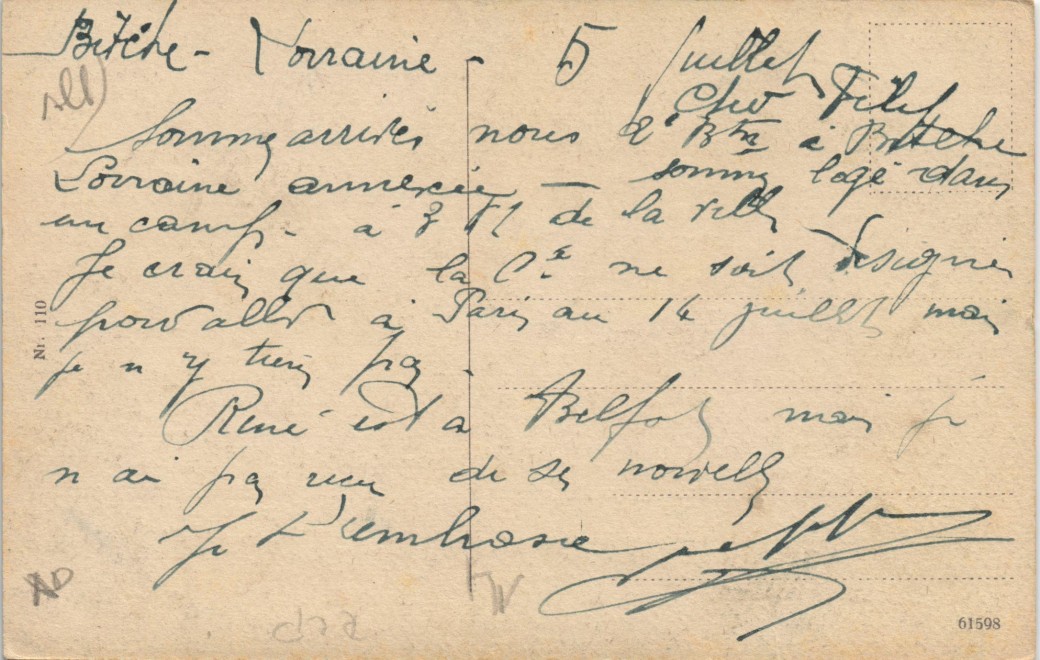 Bitche - Lorraine - 5 Juillet
Cher
Somme arrivés nous 2e Bon a Bitche
Lorraine annexée — somme logé dans
un camp - à 3 K de la ville
Je crain que la Cie ne soit désigner
pour aller a Paris au 14 juillet mais
je n y tien pas -
René est a Belfort mais je
n ai pas reçu de ses nouvelle
Je t'embrasse
Nr. 110
61598